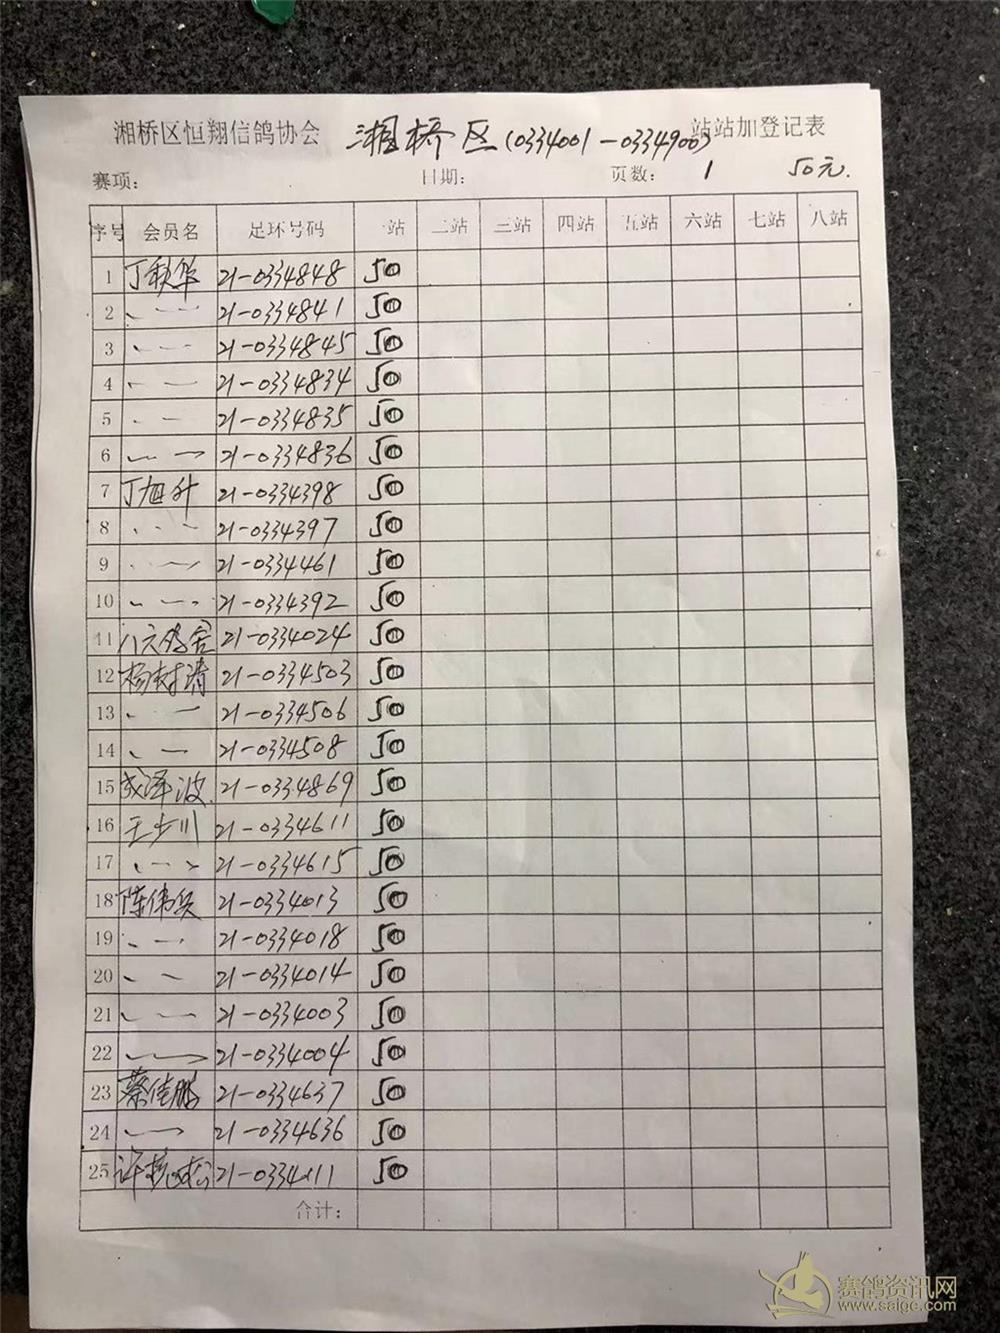 湘桥区恒翔信鸽协会 湘桥区(0334001-0334900) 站站加登记表
赛项: 日期: 页数: 1 50元.
序号 会员名 足环号码 一站 二站 三站 四站 五站 六站 七站 八站
1 丁秋华 21-0334848 50
2 21-0334841 50
3 21-0334845 50
4 21-0334834 50
5 21-0334835 50
6 21-0334836 50
7 丁旭升 21-0334398 50
8 21-0334397 50
9 21-0334461 50
10 21-0334392 50
11 八六鸽舍 21-0334024 50
12 杨树涛 21-0334503 50
13 21-0334506 50
14 21-0334508 50
15 泽波 21-0334869 50
16 王少川 21-0334611 50
17 21-0334615 50
18 陈伟兵 21-0334013 50
19 21-0334018 50
20 21-0334014 50
21 21-0334003 50
22 21-0334004 50
23 蔡佳鹏 21-0334637 50
24 21-0334636 50
25 许 21-0334111 50
合计:
赛鸽资讯网
www.saige.com